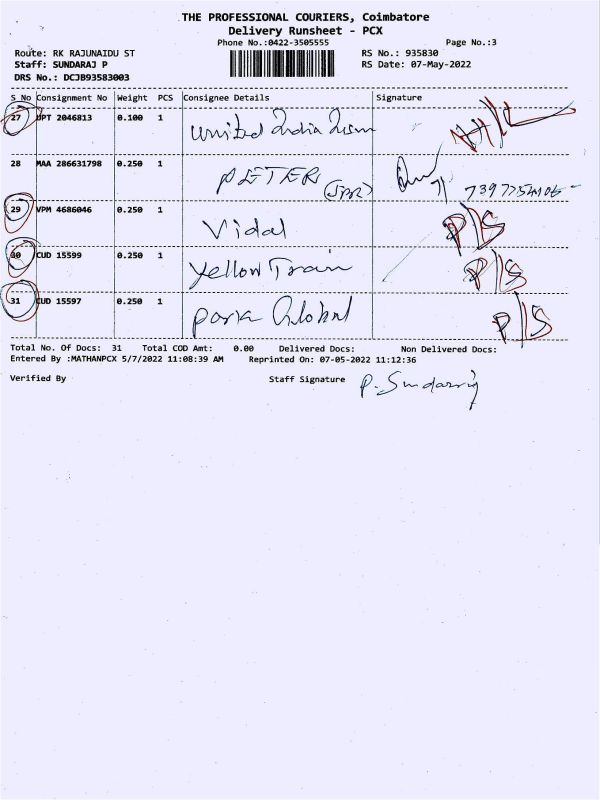 THE PROFESSIONAL COURIERS, Coimbatore
Delivery Runsheet - PCX
Phone No.:0422-3505555
Page No.:3
Route: RK RAJUNAIDU ST
RS No.: 935830
Staff: SUNDARAJ P
RS Date: 07-May-2022
DRS No.: DCJB93583003
S No Consignment No Weight PCS Consignee Details Signature
27 UPT 2046813 0.100 1 United India
28 MAA 286631798 0.250 1 PETER
29 VPM 4686046 0.250 1 Vidal P/S
30 CUD 15599 0.250 1 Yellow Train P/S
31 CUD 15597 0.250 1 Global P/S
Total No. Of Docs: 31 Total COD Amt: 0.00 Delivered Docs: Non Delivered Docs:
Entered By :MATHANPCX 5/7/2022 11:08:39 AM Reprinted On: 07-05-2022 11:12:36
Verified By Staff Signature P. Sundarraj